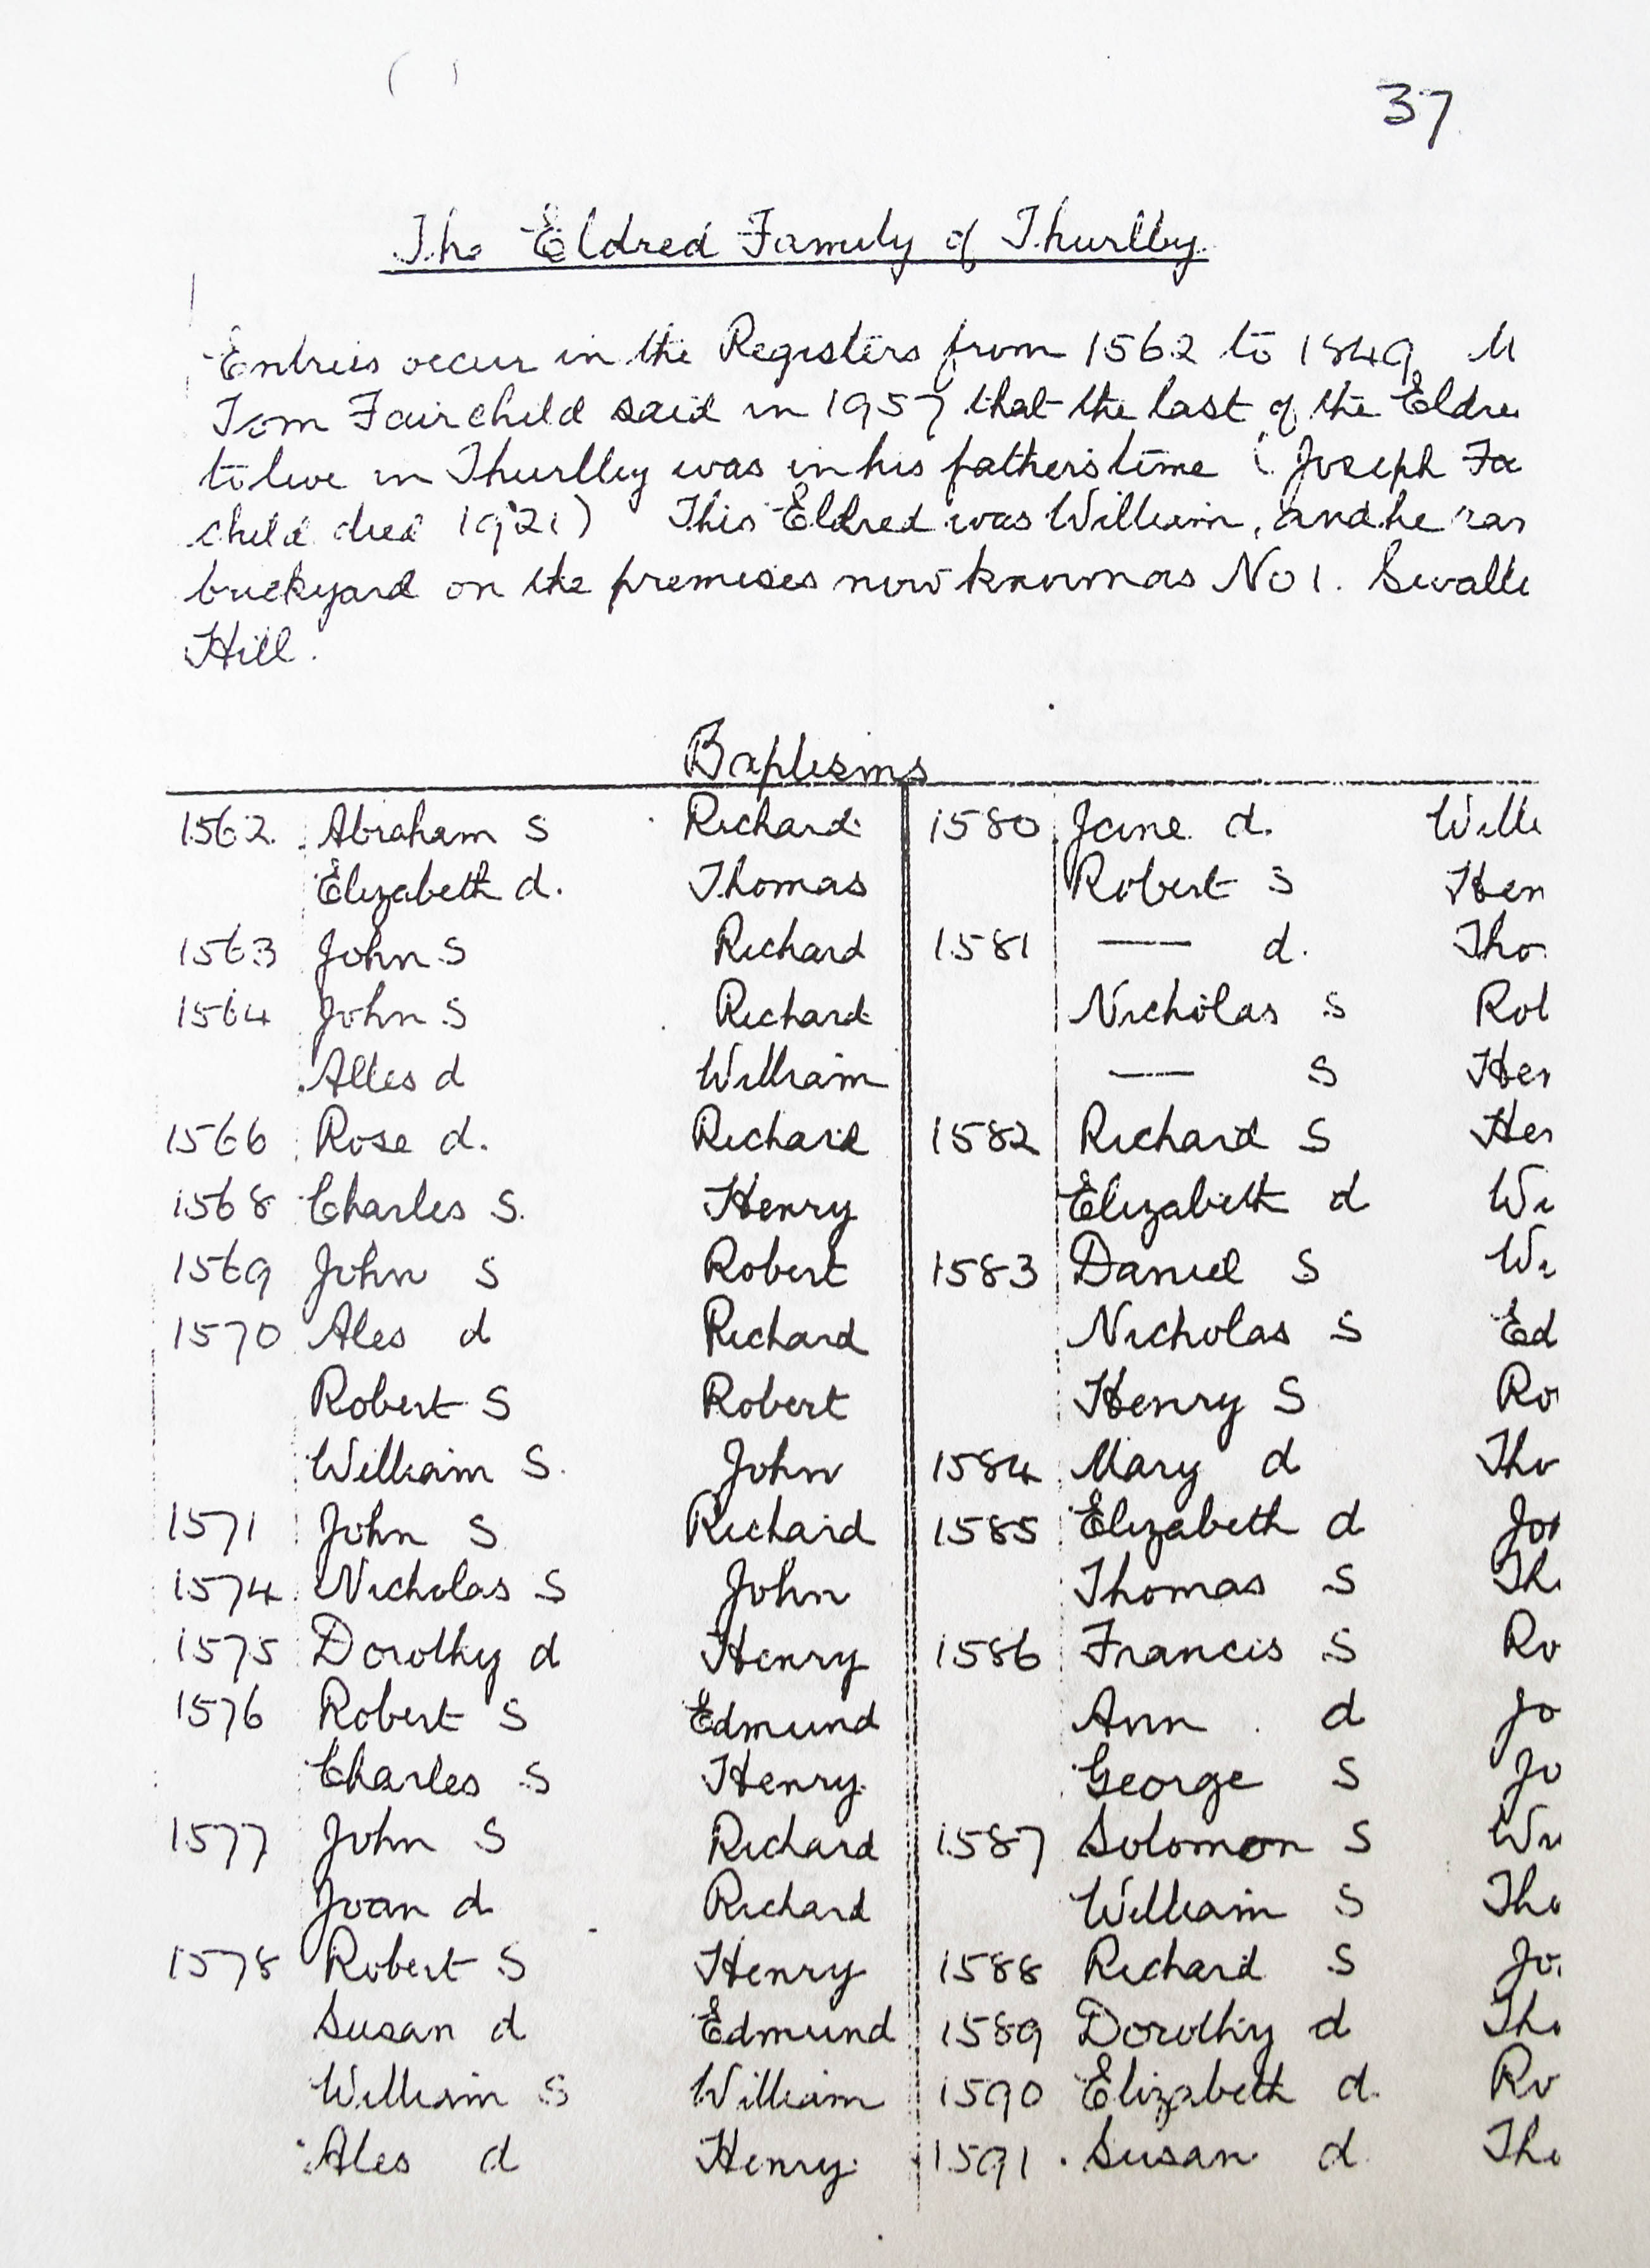 37
The Eldred Family of Thurlby.
Entries occur in the Registers from 1562 to 1849. M
Tom Fairchild said in 1957 that the last of the Eldre
to live in Thurlby was in his father's time (Joseph Fa
child died 1921) This Eldred was William, and he ran
brickyard on the premises now known as No 1. Swallo
Hill.
Baptisms
1562. Abraham S Richard 1580 Jane d. Willi
Elizabeth d. Thomas Robert S Hen
1563 John S Richard 1581 — d. Tho
1564 John S Richard Nicholas S Rob
Alles d William — S Hen
1566 Rose d. Richard 1582 Richard S Hen
1568 Charles S. Henry Elizabeth d Wi
1569 John S Robert 1583 Daniel S Wi
1570 Ales d Richard Nicholas S Ed
Robert S Robert Henry S Ro
William S. John 1584 Mary d Tho
1571 John S Richard 1585 Elizabeth d Jo
1574 Nicholas S John Thomas S Th
1575 Dorothy d Henry 1586 Francis S Ro
1576 Robert S Edmund Ann d Jo
Charles S Henry George S Jo
1577 John S Richard 1587 Solomon S Wi
Joan d Richard William S Tho
1578 Robert S Henry 1588 Richard S Jo
Susan d Edmund 1589 Dorothy d Tho
William S William 1590 Elizabeth d. Ro
Ales d Henry 1591 Susan d Tho